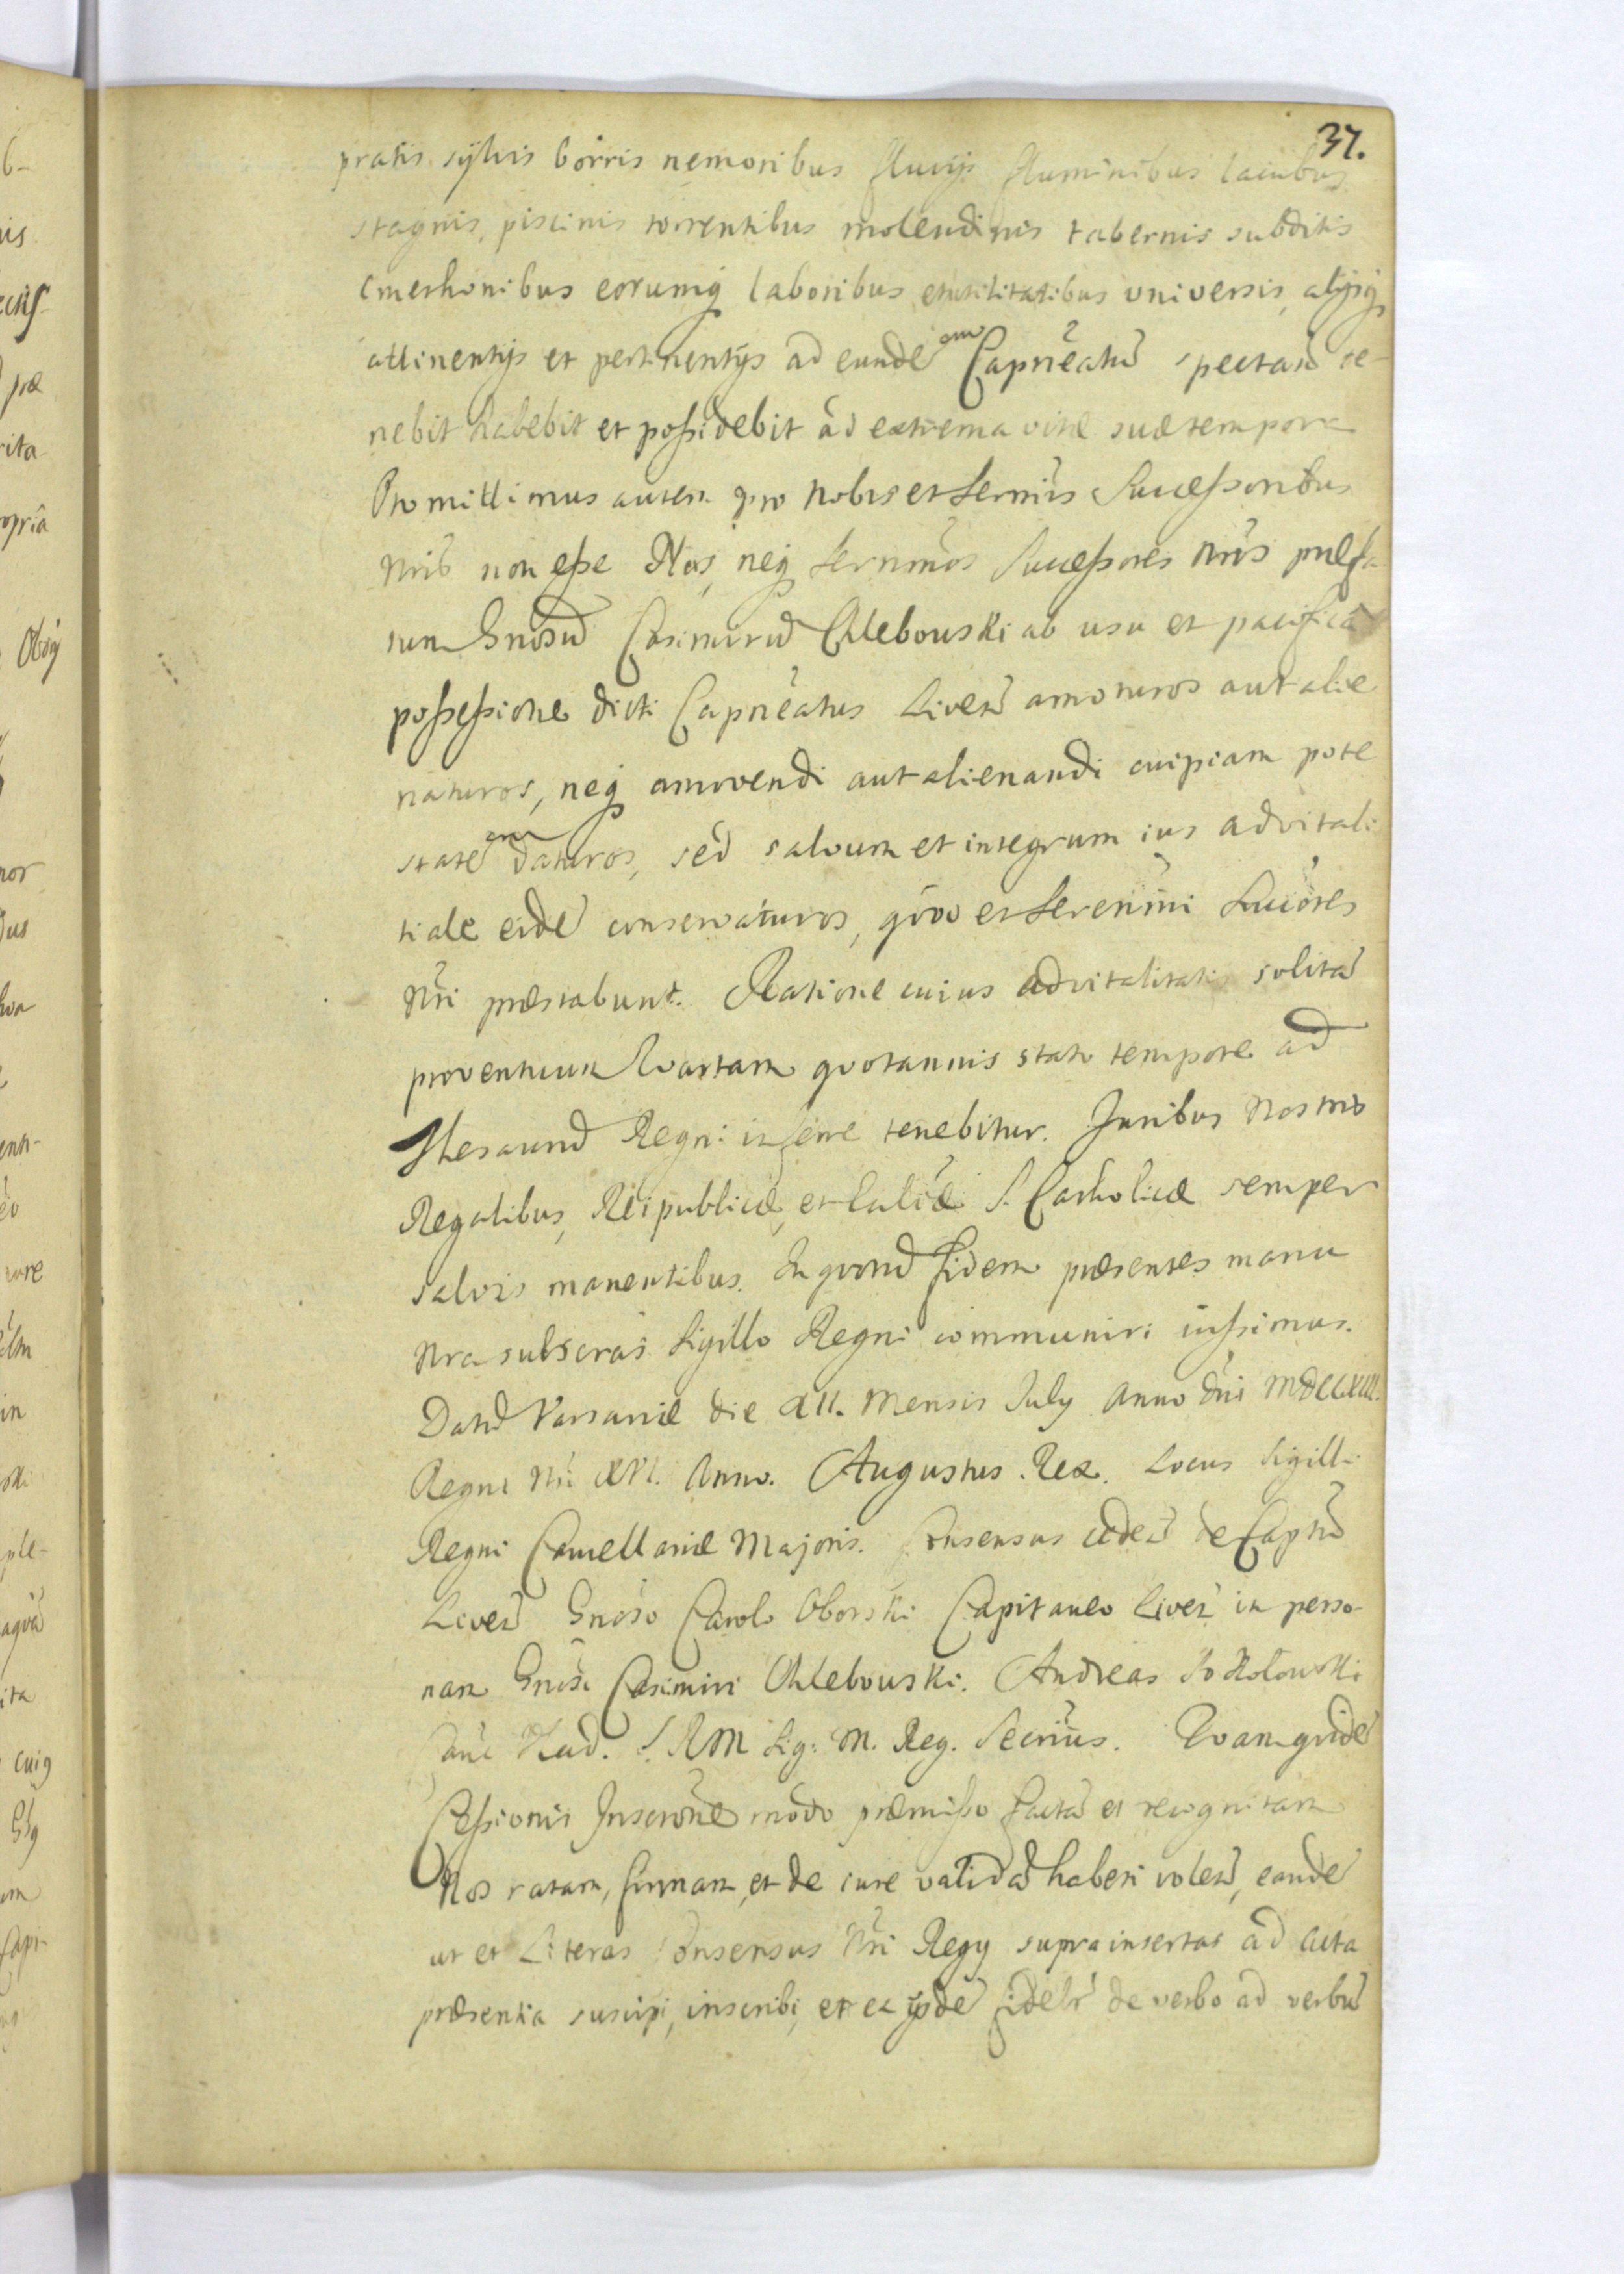 37.
pratis sylvis borris nemoribus fluvijs fluminibus lacubus
stagnis, piscinis torrentibus molendinis tabernis subditis
Cmethonibus eorumq laboribus et utilitatibus universis, alijsq
attinentijs et pertinentijs ad eundem Capnēatū spectan te-
nebit habebit et poßidebit ad extrema vitæ suæ tempora
Promittimus autem pro nobis et Sernīs Succeßoribus
Nris non eße Nos, neq Sernmōs Succeßores Nros præfa
tum Gnosū Casimirū Chlebowski ab usu et pacifica
poßeßione dicti Capnēatus Liven amoturos aut alie
naturos, neq amovendi aut alienandi cuipiam pote
statem daturos, sed salvum et integrum ius advitali
tiale eidē conservaturos, qōd et Serenīmi Succōres
Nri præstabunt. Ratione cuius advitalitatis solitā
proventuum Quartam quotannis stato tempore ad
Thesaurū Regni inferre tenebitur. Juribus Nostris
Regalibus, Reipublicæ, et Ecclīæ S. Catholicæ semper
salvis manentibus. In quorū fidem præsentes manu
Nra subscras Sigillo Regni communiri iußimus.
Datū Varsaviæ die XII. Mensis July Anno Dni MDCCXIII.
Regni Nri XVI. Anno. Augustus Rex. Locus Sigilli
Regni Cancellariæ Majoris. Consensus cedēn de Captū
Liven Gnoso Carolo Oborski Capitaneo Liven in perso-
nam Gnosi Casimiri Chlebowski. Andreas
S. RM Sig: M. Reg. Secrius. Quam quidē
Ceßionis Inscrōnē modo præmißo factā et recognitam
Nos ratam, firmam, et de iure validā haberi volen, eandē
ut et Literas Consensus Nri Regij suprainsertas ad Acta
præsentia suscipi, inscribi, et ex ijsdē fidelr de verbo ad verbū